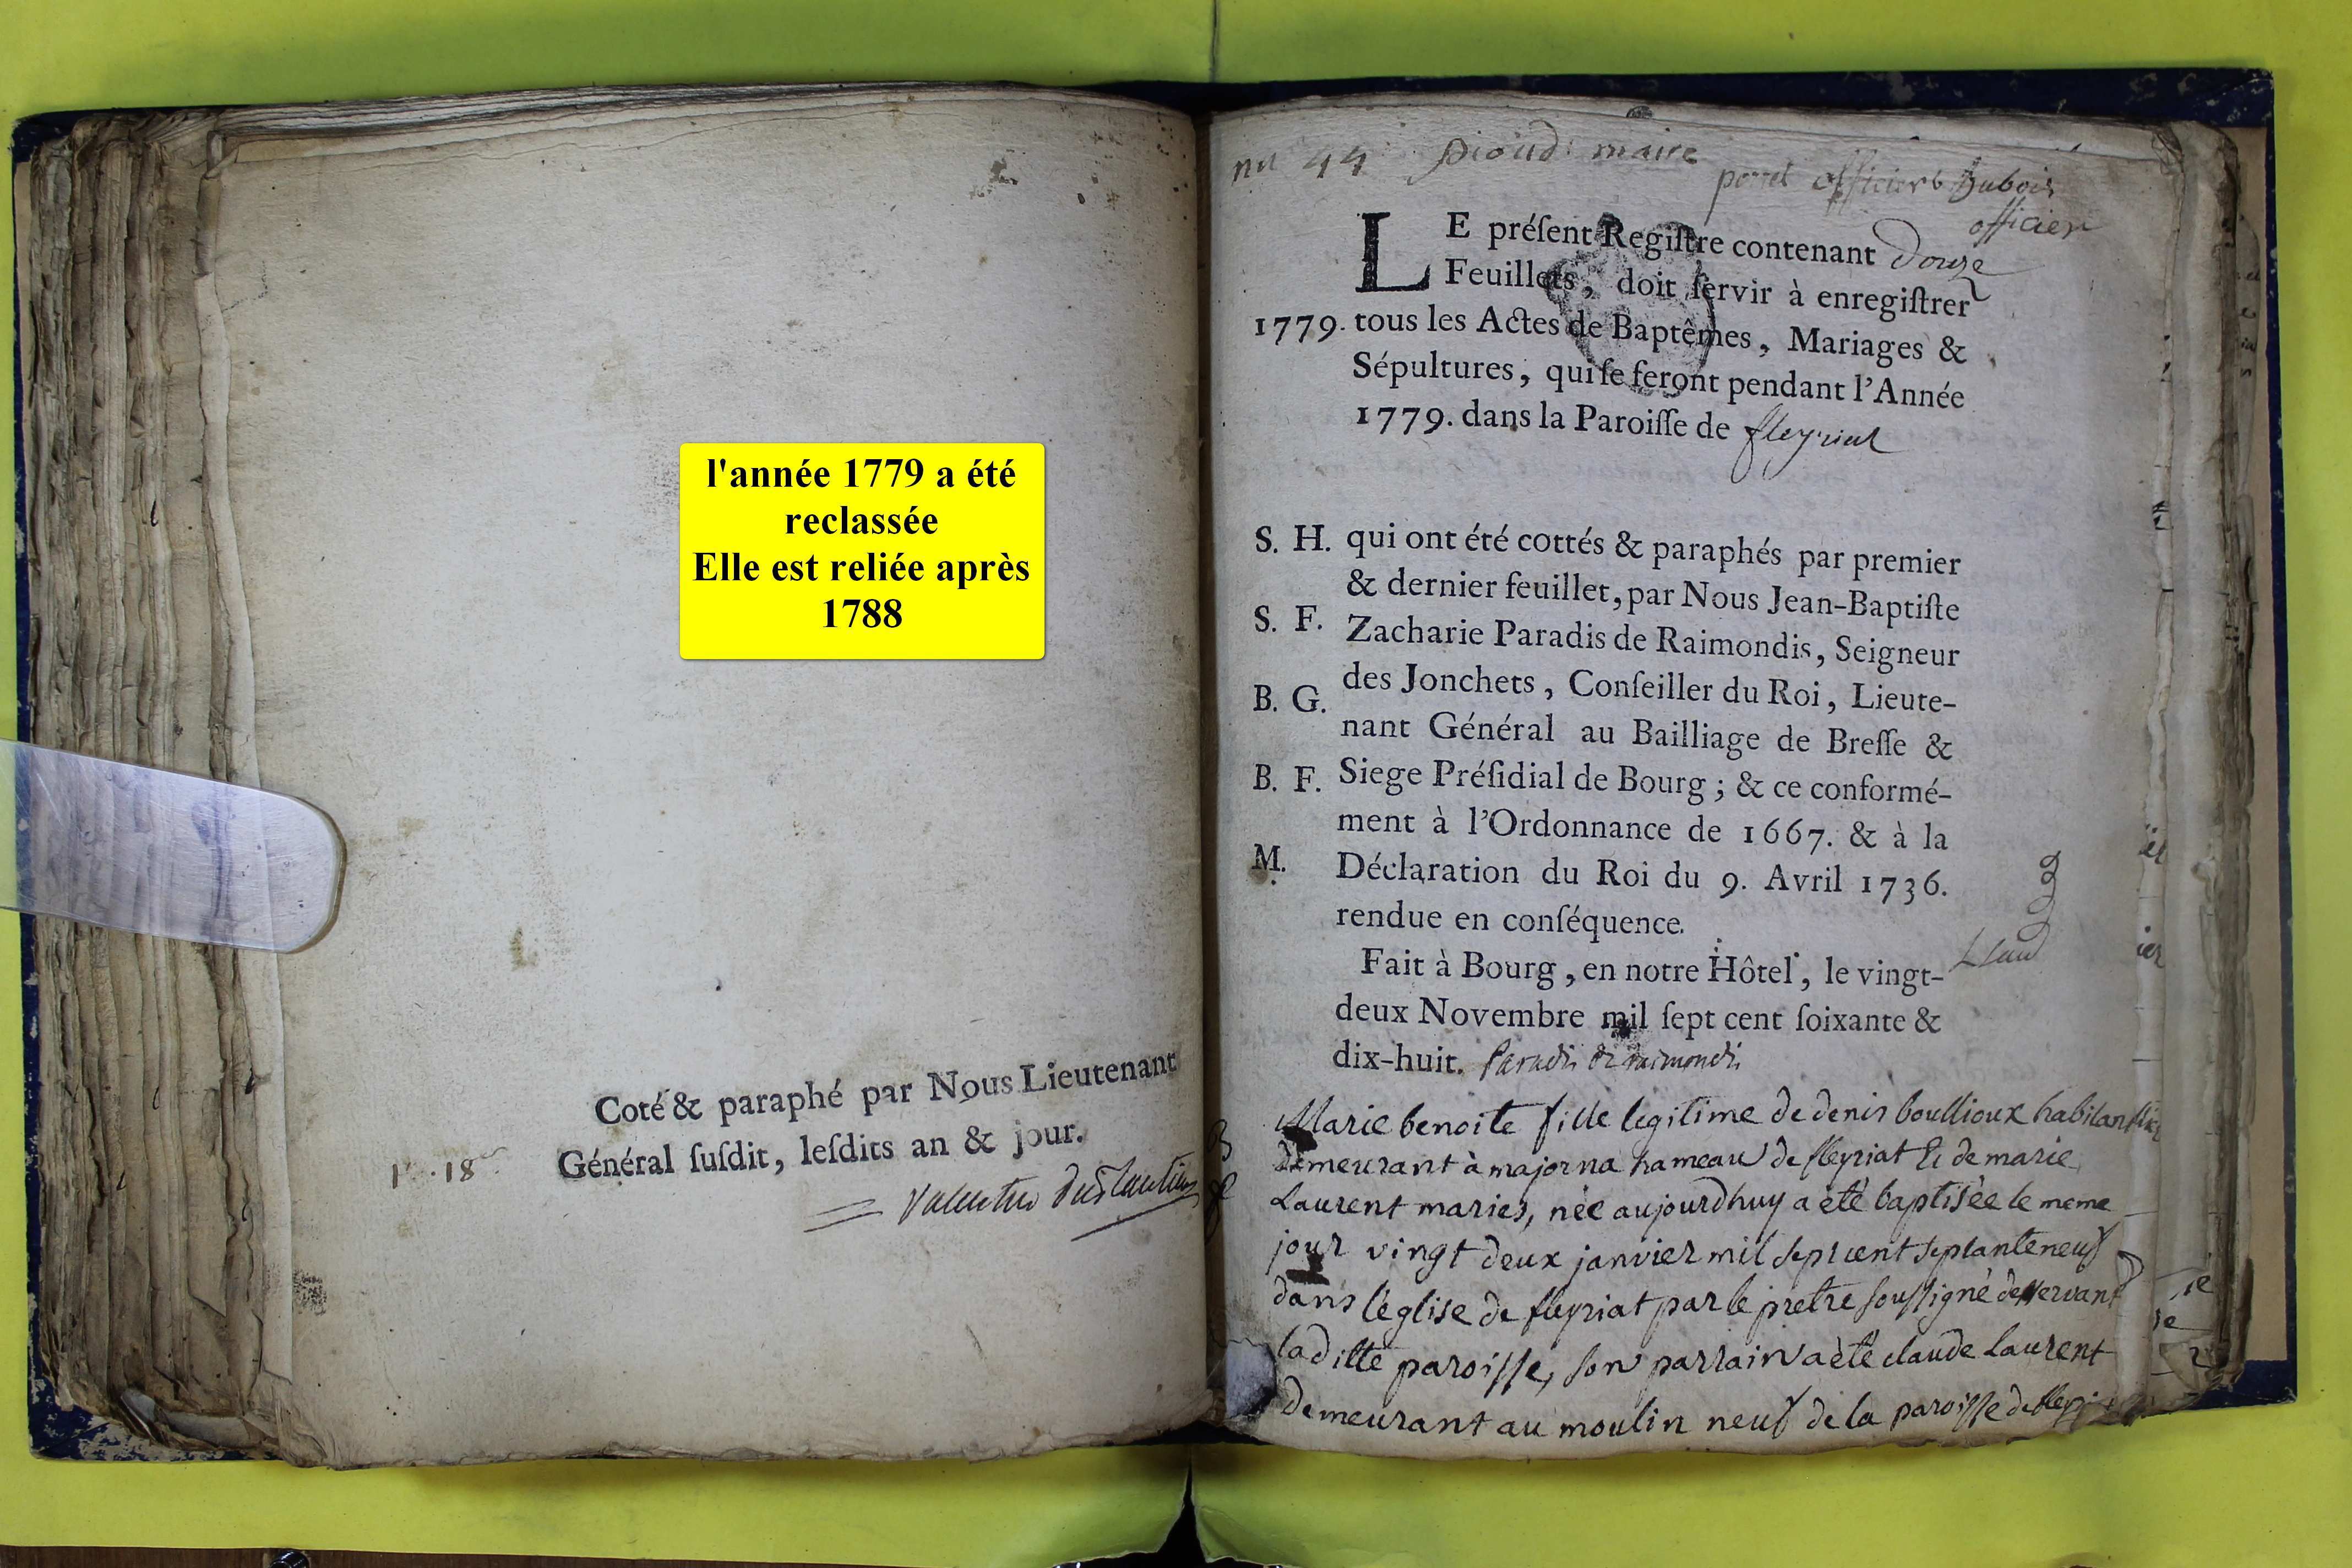 l'année 1779 a été
reclassée
Elle est reliée après
1788
Coté & paraphé par Nous Lieutenant
Général ſuſdit, leſdits an & jour.
18
nu 44 maire
officiers Dubois
officier
LE préſent Regiſtre contenant Douze
Feuillets, doit ſervir à enregiſtrer
1779. tous les Actes de Baptêmes, Mariages &
Sépultures, qui ſe feront pendant l'Année
1779. dans la Paroiſſe de fleyriat
S. H. qui ont été cottés & paraphés par premier
& dernier feuillet, par Nous Jean-Baptiſte
S. F. Zacharie Paradis de Raimondis, Seigneur
des Jonchets, Conſeiller du Roi, Lieute-
B. G. nant Général au Bailliage de Breſſe &
B. F. Siege Préſidial de Bourg ; & ce conformé-
ment à l'Ordonnance de 1667. & à la
M. Déclaration du Roi du 9. Avril 1736.
rendue en conſéquence.
Fait à Bourg, en notre Hôtel, le vingt-
deux Novembre mil ſept cent ſoixante &
dix-huit. Paradis de raimondis
Marie benoite fille legitime de denis boullioux habitant
demeurant à majorna hameau de fleyriat Et de marie
Laurent mariés, née aujourdhuy a été baptisée le meme
jour vingt deux janvier mil sept cent septante neuf
dans l'église de fleyriat par le pretre soussigné desservant
laditte paroisse, son parrain a été claude Laurent
demeurant au moulin neuf de la paroisse de